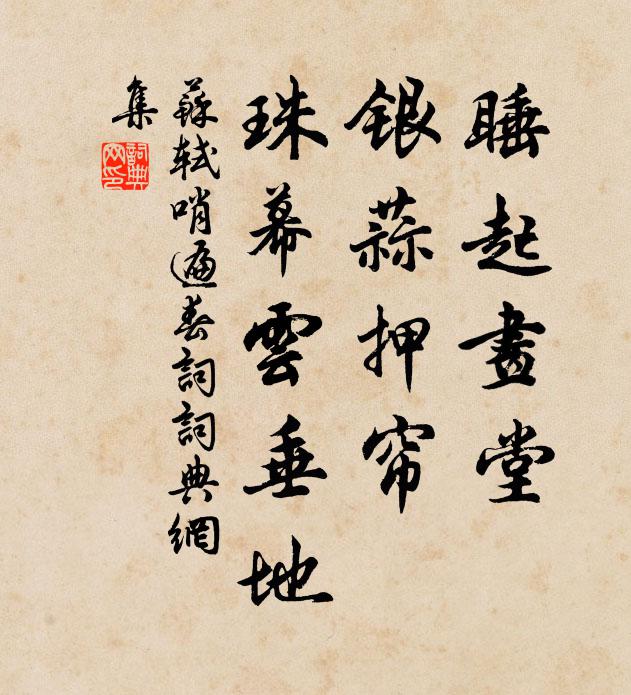 睡起畫堂
銀蒜押帘
珠幕雲垂地
蘇軾哨遍春詞詞典網
集
詞典
网印